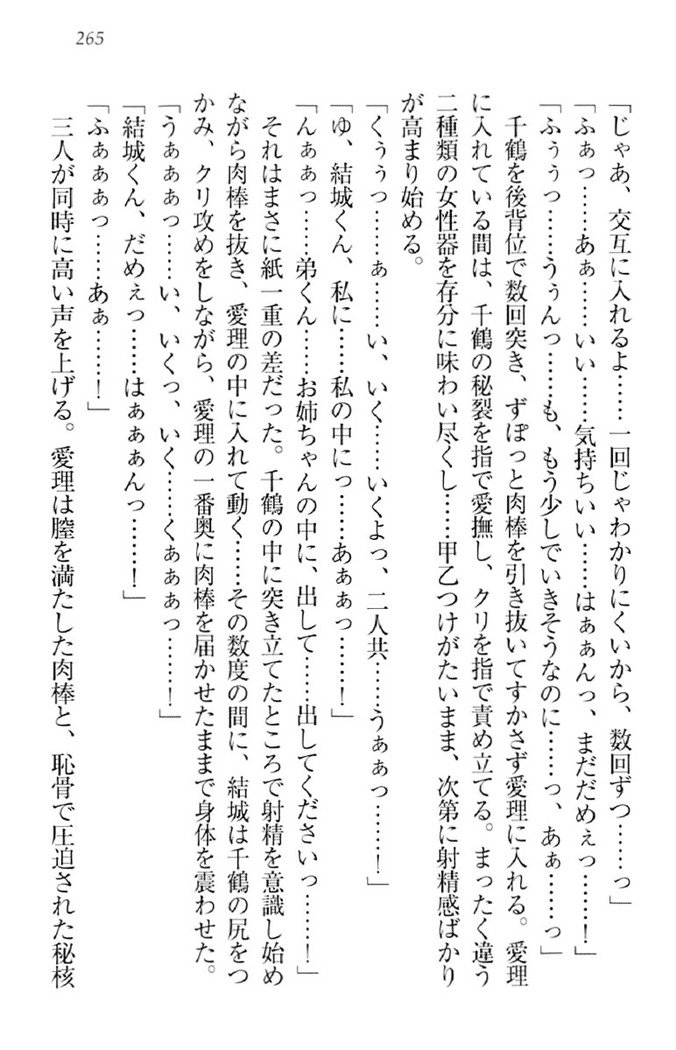 265
「じゃあ、交互に入れるよ……一回じゃわかりにくいから、数回ずつ……っ」
「ふぁっ……あぁ……いい……気持ちいい……はぁぁんっ、まだだめぇっ……！」
「ふぅぅっ……うぅんっ……も、もう少しでいきそうなのに……っ、あぁ……っ」
千鶴を後背位で数回突き、ずぽっと肉棒を引き抜いてすかさず愛理に入れる。愛理
に入れている間は、千鶴の秘裂を指で愛撫し、クリを指で責め立てる。まったく違う
二種類の女性器を存分に味わい尽くし……甲乙つけがたいまま、次第に射精感ばかり
が高まり始める。
「くぅぅっ……ぁ……い、いく……いくよっ、二人共……うぁぁっ……！」
「ゆ、結城くん、私に……私の中にっ……あぁぁっ……！」
「んぁぁっ……弟くん……お姉ちゃんの中に、出して……出してくださいっ……！」
それはまさに紙一重の差だった。千鶴の中に突き立てたところで射精を意識し始め
ながら肉棒を抜き、愛理の中に入れて動く……その数度の間に、結城は千鶴の尻をつ
かみ、クリ攻めをしながら、愛理の一番奥に肉棒を届かせたままで身体を震わせた。
「うぁぁぁっ……い、いくっ、いく……くぁぁぁっ……！」
「結城くん、だめぇっ……はぁぁぁんっ……！」
「ふぁぁぁっ……あぁ……！」
三人が同時に高い声を上げる。愛理は膣を満たした肉棒と、恥骨で圧迫された秘核